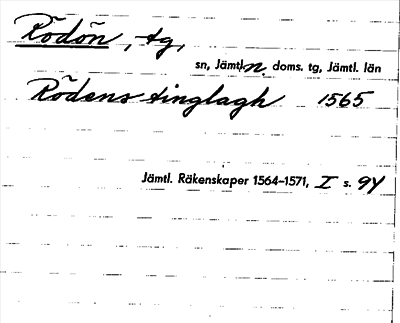 Rödön, tg,
sn, Jämtl. n. doms. tg, Jämtl. län
Rödens tinglagh 1565
Jämtl. Räkenskaper 1564–1571, I s. 94